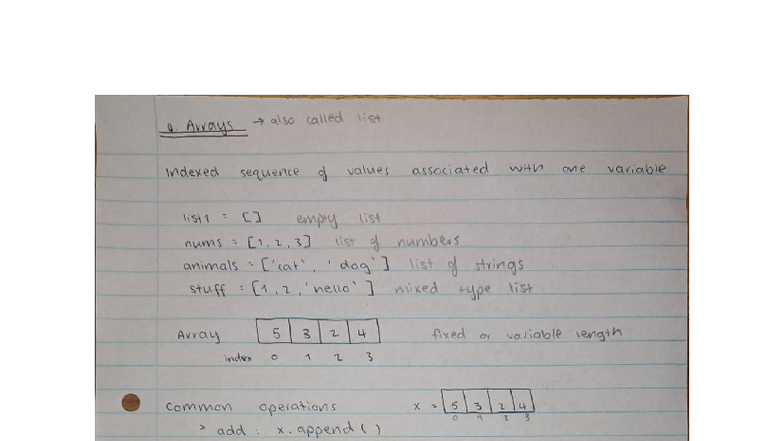 a. Arrays → also called list
Indexed sequence of values associated with one variable
list1 = [] empty list
nums = [1, 2, 3] list of numbers
animals = ['cat', 'dog'] list of strings
stuff = [1, 2, 'hello'] mixed type list
Array 5 3 2 4 fixed or variable length
index 0 1 2 3
Common operations x = 5 3 2 4
0 1 2 3
> add : x.append()